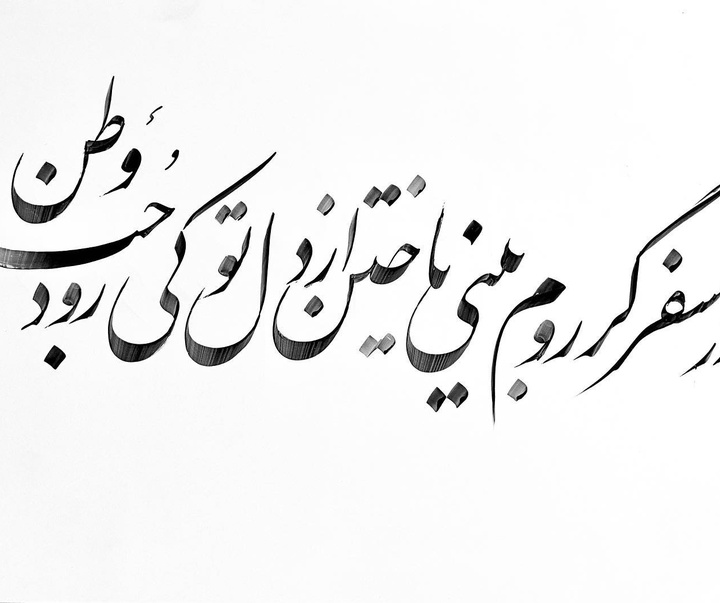 در سفر گر روم بینی یا ختن از دل تو کی رود حُب وطن